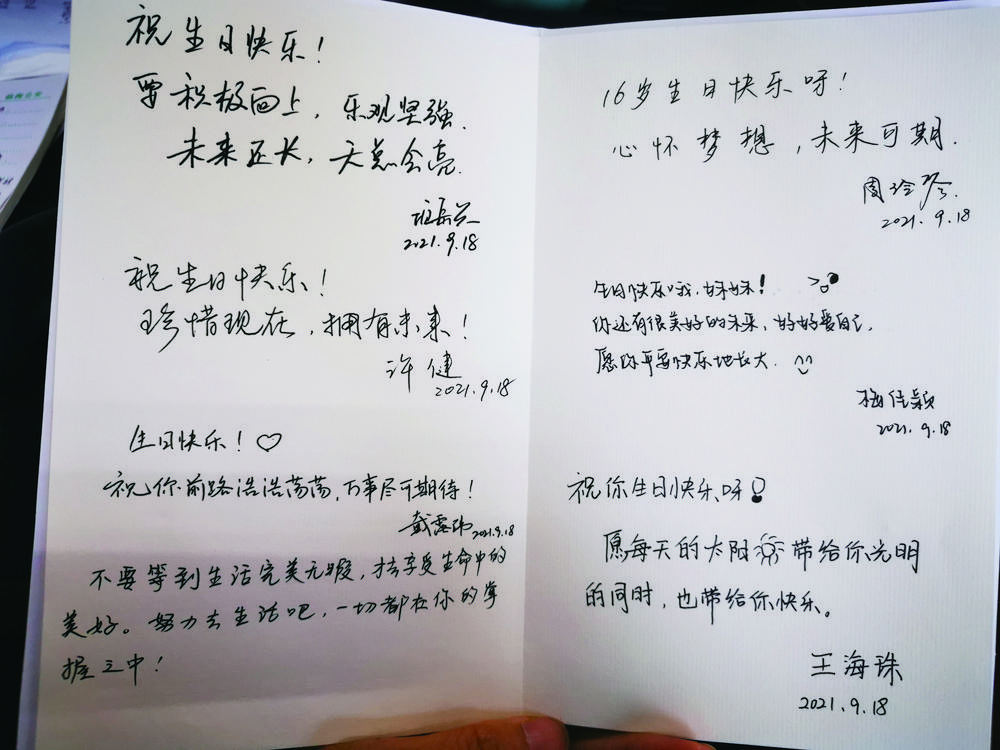 祝生日快乐!
要积极向上,乐观坚强.
未来还长,天总会亮.
2021.9.18
祝生日快乐!
珍惜现在,拥有未来!
许健
2021.9.18
生日快乐!♡
祝你前路浩浩荡荡,万事尽可期待!
戴露
2021.9.18
不要等到生活完美无暇,才去享受生命中的
美好。努力去生活吧,一切都在你的掌
握之中!
16岁生日快乐呀!
心怀梦想,未来可期.
周玲琴.
2021.9.18
生日快乐哦,妹妹!
你还有很美好的未来,好好爱自己,
愿你平安快乐地长大.
梅佳颖
2021.9.18
祝你生日快乐呀!
愿每天的太阳带给你光明
的同时,也带给你快乐。
王海珠
2021.9.18